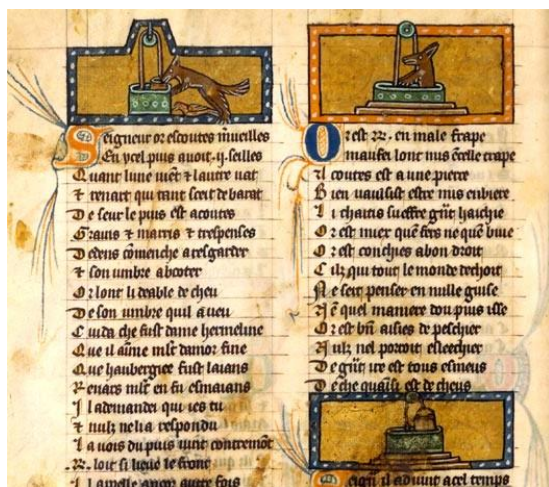 Seigneur or escoutes miueilles
En ycel puis auoit .ij. seilles
Quant lune uiet & lautre uat
& renart qui tant scet de barat
De seur le puis est acoutes
Grains & marris & trespenses
Dedens cōmenche a resgarder
& son umbre abooter
Or lont li deable de cheu
De son umbre quil a ueu
Cuida che fust dame hermeline
Que il aime mlt damor fine
Que haubergiee fust laians
Renars mlt en fu esmaians
Il a demande qui ies tu
& nulz ne li a respondu
La uois du puis uint contremōt
.R. loit si lieue le front
Il
Or est .R. en male frape
maufei lont mis celle trape
Acoutes est a une pierre
Bien uaulsist estre mis en biere
Li chaitis sueffre grāt hachie
Or est mlex
Or est conchies a bon droit
Cilz qui tout le monde dechoit
Ne seit penser en nulle guise
En quel maniere dou puis isse
Or est bn̄ aisies de peschier
Nulz nel porroit esleechier
De grāt ire est tous esmeus
De che quainsi est decheus
Seign̄ il aduint a cel temps